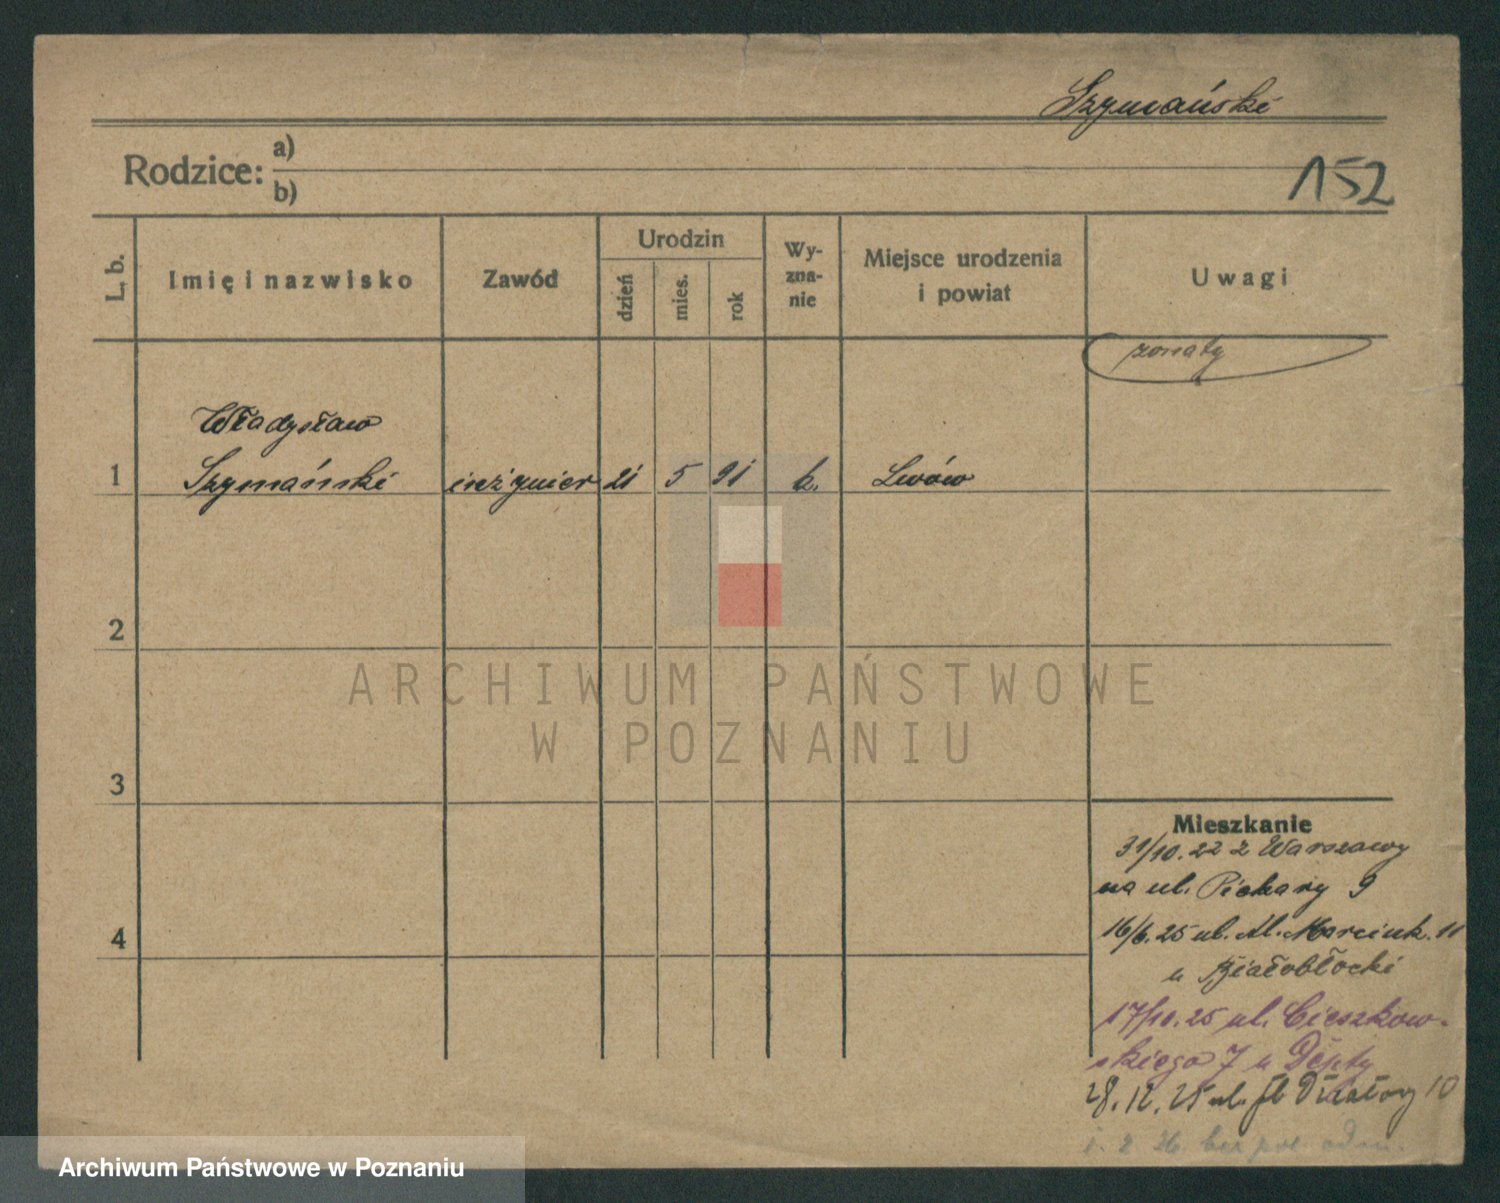 Szymański
Rodzice: a)
b)
152
L. b.
Imię i nazwisko
Zawód
Urodzin
dzień
mies.
rok
Wy-
zna-
nie
Miejsce urodzenia
i powiat
Uwagi
żonaty
1
Władysław
Szymański
inżynier
21
5
91
k.
Lwów
2
3
4
Mieszkanie
31/10. 22 z Warszawy
na ul. Piekary 9
16/6. 25 ul. Al. Marcink. 11
u Białobłocki
17/10. 25 ul. Cieszkow-
skiego 7 u
28. 12. 25 ul. Działowy 10
ARCHIWUM PAŃSTWOWE
W POZNANIU
Archiwum Państwowe w Poznaniu